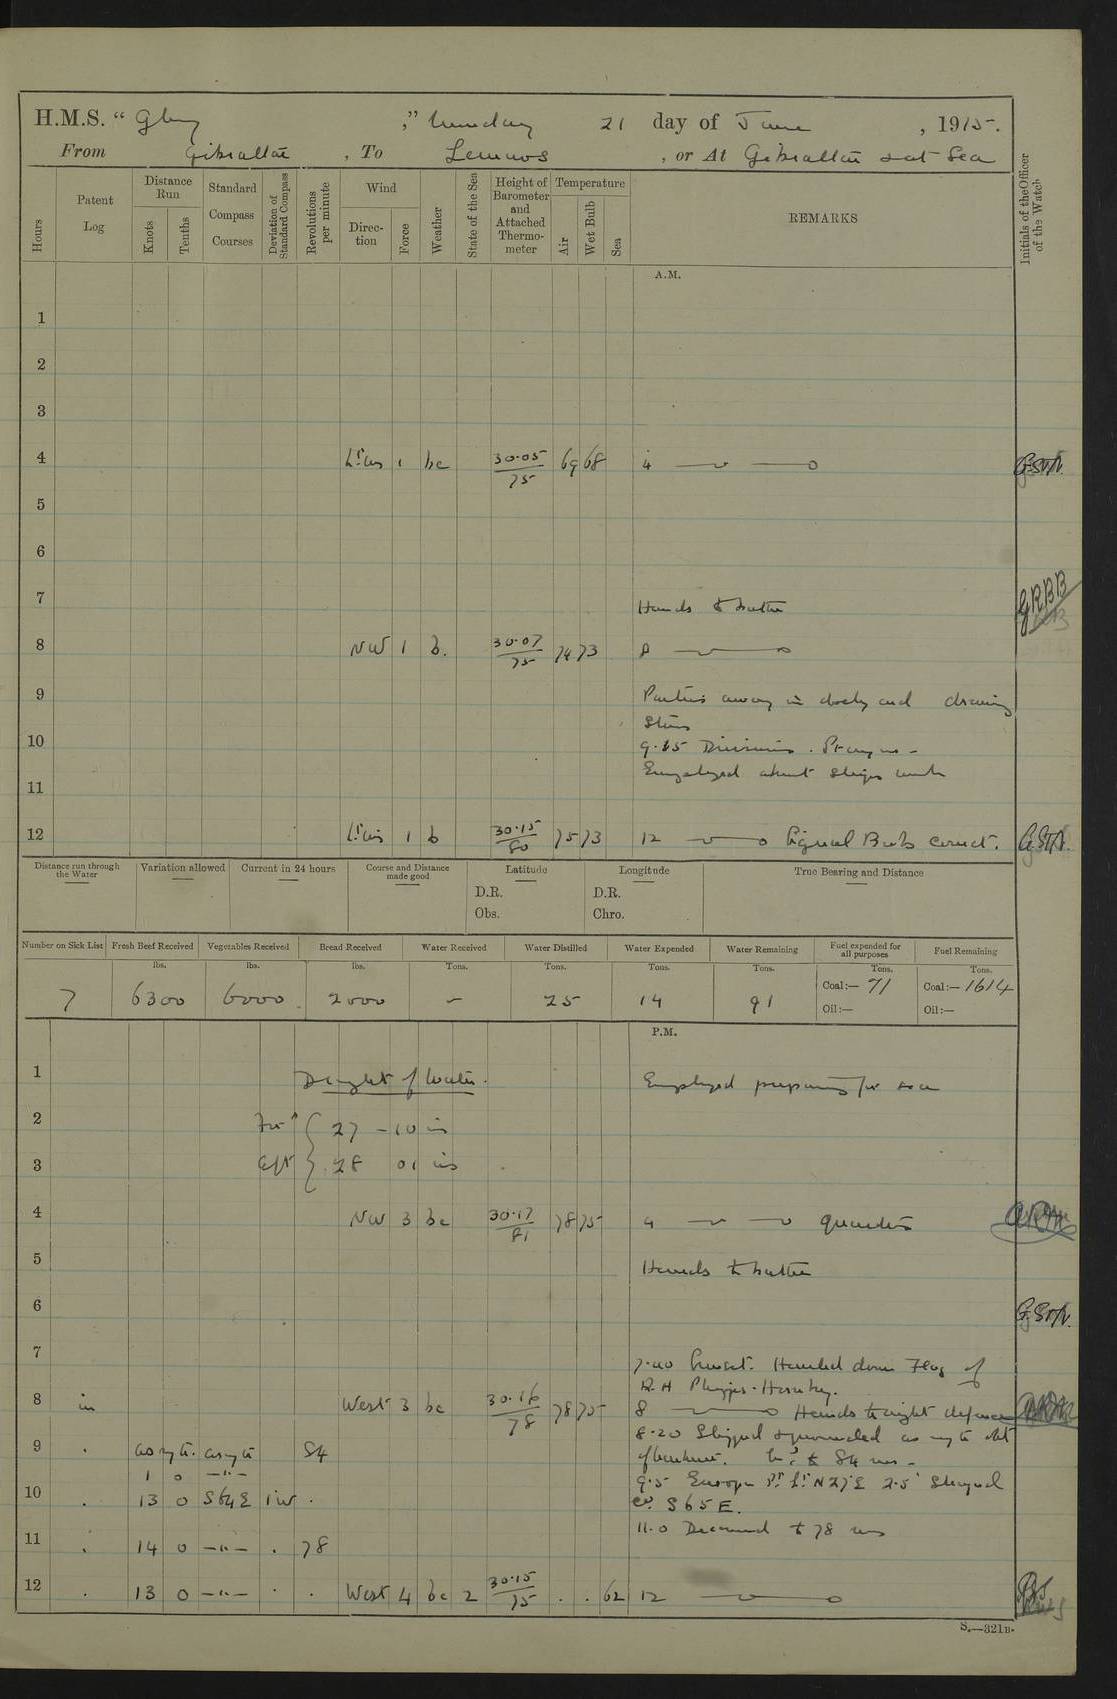 H.M.S. “ Glory ,” Monday 21 day of June , 1915.
From Gibraltar , To Lemnos , or At Gibraltar & at Sea
Hours Patent Log Distance Run Knots Tenths Standard Compass Courses Deviation of Standard Compass Revolutions per minute Wind Direction Force Weather State of the Sea Height of Barometer and Attached Thermometer Temperature Air Wet Bulb Sea REMARKS Initials of the Officer of the Watch
A.M.
1
2
3
4 Lt airs 1 bc 30.05 / 75 69 68 4
5
6
7 Hands to bathe
8 NW 1 b. 30.07 / 75 74 73 8
9 Parties away in dockyard drawing
stores
10 9.15 Divisions. Prayers -
Employed about ships work
11
12 Lt airs 1 b 30.15 / 80 75 73 12 Signal Books correct.
Distance run through the Water Variation allowed Current in 24 hours Course and Distance made good Latitude Longitude True Bearing and Distance
D.R. D.R.
Obs. Chro.
Number on Sick List Fresh Beef Received Vegetables Received Bread Received Water Received Water Distilled Water Expended Water Remaining Fuel expended for all purposes Fuel Remaining
lbs. lbs. lbs. Tons. Tons. Tons. Tons. Tons. Tons.
7 6300 6000 2000 - 25 14 91 Coal:— 71 Coal:— 1614
Oil:— Oil:—
P.M.
1 Draught of Water. Employed preparing for sea
2 For'd 27 - 10 ins
3 Aft 28 01 ins
4 NW 3 bc 30.17 / 81 78 75 4 Quarters
5 Hands to bathe
6
7 7.40 Sunset. Hauled down Flag of
R.A Phipps-Hornby.
8 in West 3 bc 30.16 / 78 78 75 8 Hands to night defence
8.20 Slipped & proceeded as req'te out
9 as req'te. as req'te 84 of harbour. to 84 revs -
1 0 -"- 9.5 Europa Pt Lt N27°E 2.5' Shaped
10 13 0 S64E 1W co. S65E.
11.0 Decreased to 78 revs
11 14 0 -"- 78
12 13 0 -"- West 4 bc 2 30.15 / 75 62 12
S.—321B.